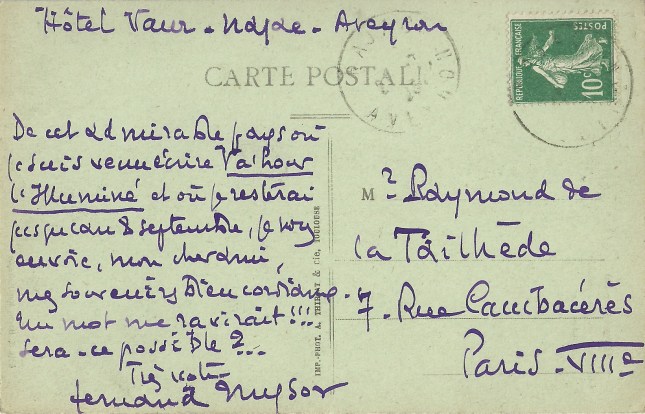 Hôtel Vaur - Najac - Aveyron
CARTE POSTALE
RÉPUBLIQUE FRANÇAISE
POSTES
10c
De cet admirable pays où
je suis venu écrire Va'hour
l'Illuminé et où je resterai
jusqu'au 8 septembre, je vous
envoie, mon cher ami,
mes souvenirs bien cordiaux.
Un mot me ravirait!!!
Sera-ce possible?...
Très votre
Fernand
IMP.-PHOT. A. THIRIAT & Cie, TOULOUSE
Mr Raymond de
la Tailhède
7 - Rue Cambacérès
Paris - VIIIe